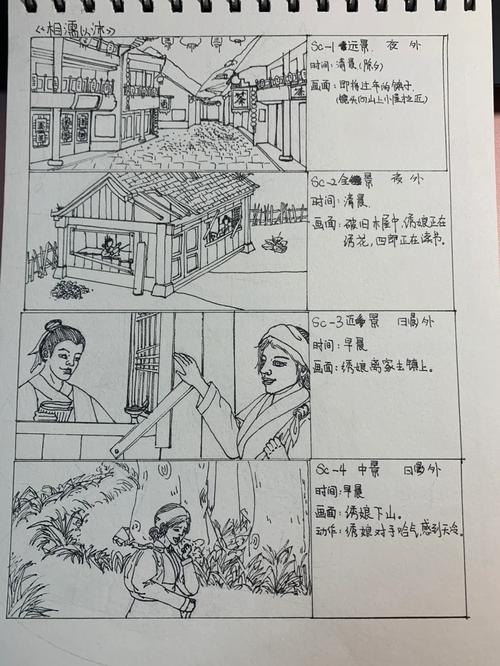 《相濡以沫》
Sc-1 远景 夜 外
时间:清晨(除夕)
画面:即将过年的镇子.
(镜头向山上小屋拉近)
茶
Sc-2 全景 夜 外
时间:清晨.
画面:破旧木屋中,绣娘正在
绣花,四郎正在读书.
Sc-3 近景 日 外
时间:早晨
画面:绣娘离家去镇上。
Sc-4 中景 日 外
时间:早晨
画面:绣娘下山。
动作:绣娘对手哈气,感到天冷。